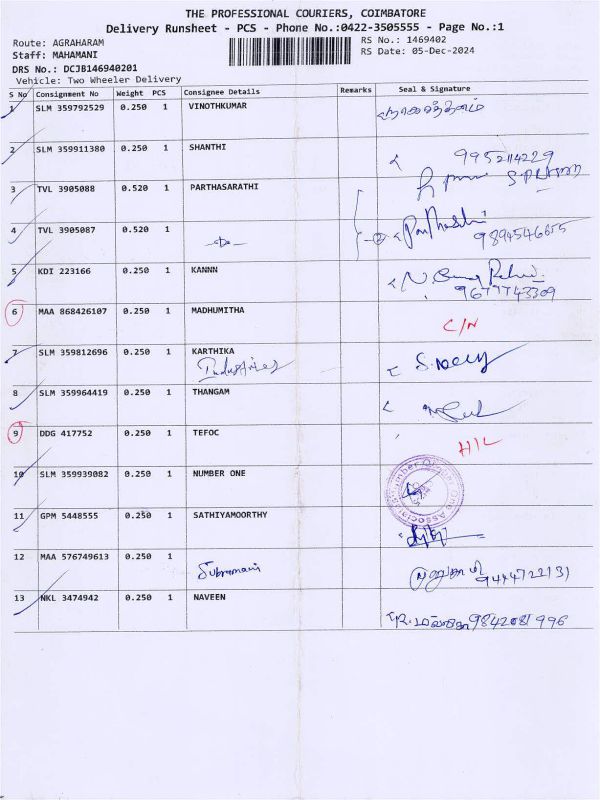 THE PROFESSIONAL COURIERS, COIMBATORE
Delivery Runsheet - PCS - Phone No.:0422-3505555 - Page No.:1
Route: AGRAHARAM
RS No.: 1469402
Staff: MAHAMANI
RS Date: 05-Dec-2024
DRS No.: DCJB146940201
Vehicle: Two Wheeler Delivery
S No Consignment No Weight PCS Consignee Details Remarks Seal & Signature
1 SLM 359792529 0.250 1 VINOTHKUMAR
2 SLM 359911380 0.250 1 SHANTHI
9952114229
3 TVL 3905088 0.520 1 PARTHASARATHI
4 TVL 3905087 0.520 1 -do- 2 9894546655
5 KDI 223166 0.250 1 KANNN
9677743309
6 MAA 868426107 0.250 1 MADHUMITHA C/N
7 SLM 359812696 0.250 1 KARTHIKA
Industries
8 SLM 359964419 0.250 1 THANGAM
9 DDG 417752 0.250 1 TEFOC H/L
10 SLM 359939082 0.250 1 NUMBER ONE
11 GPM 5448555 0.250 1 SATHIYAMOORTHY
12 MAA 576749613 0.250 1
Subramani
13 NKL 3474942 0.250 1 NAVEEN
9842081996